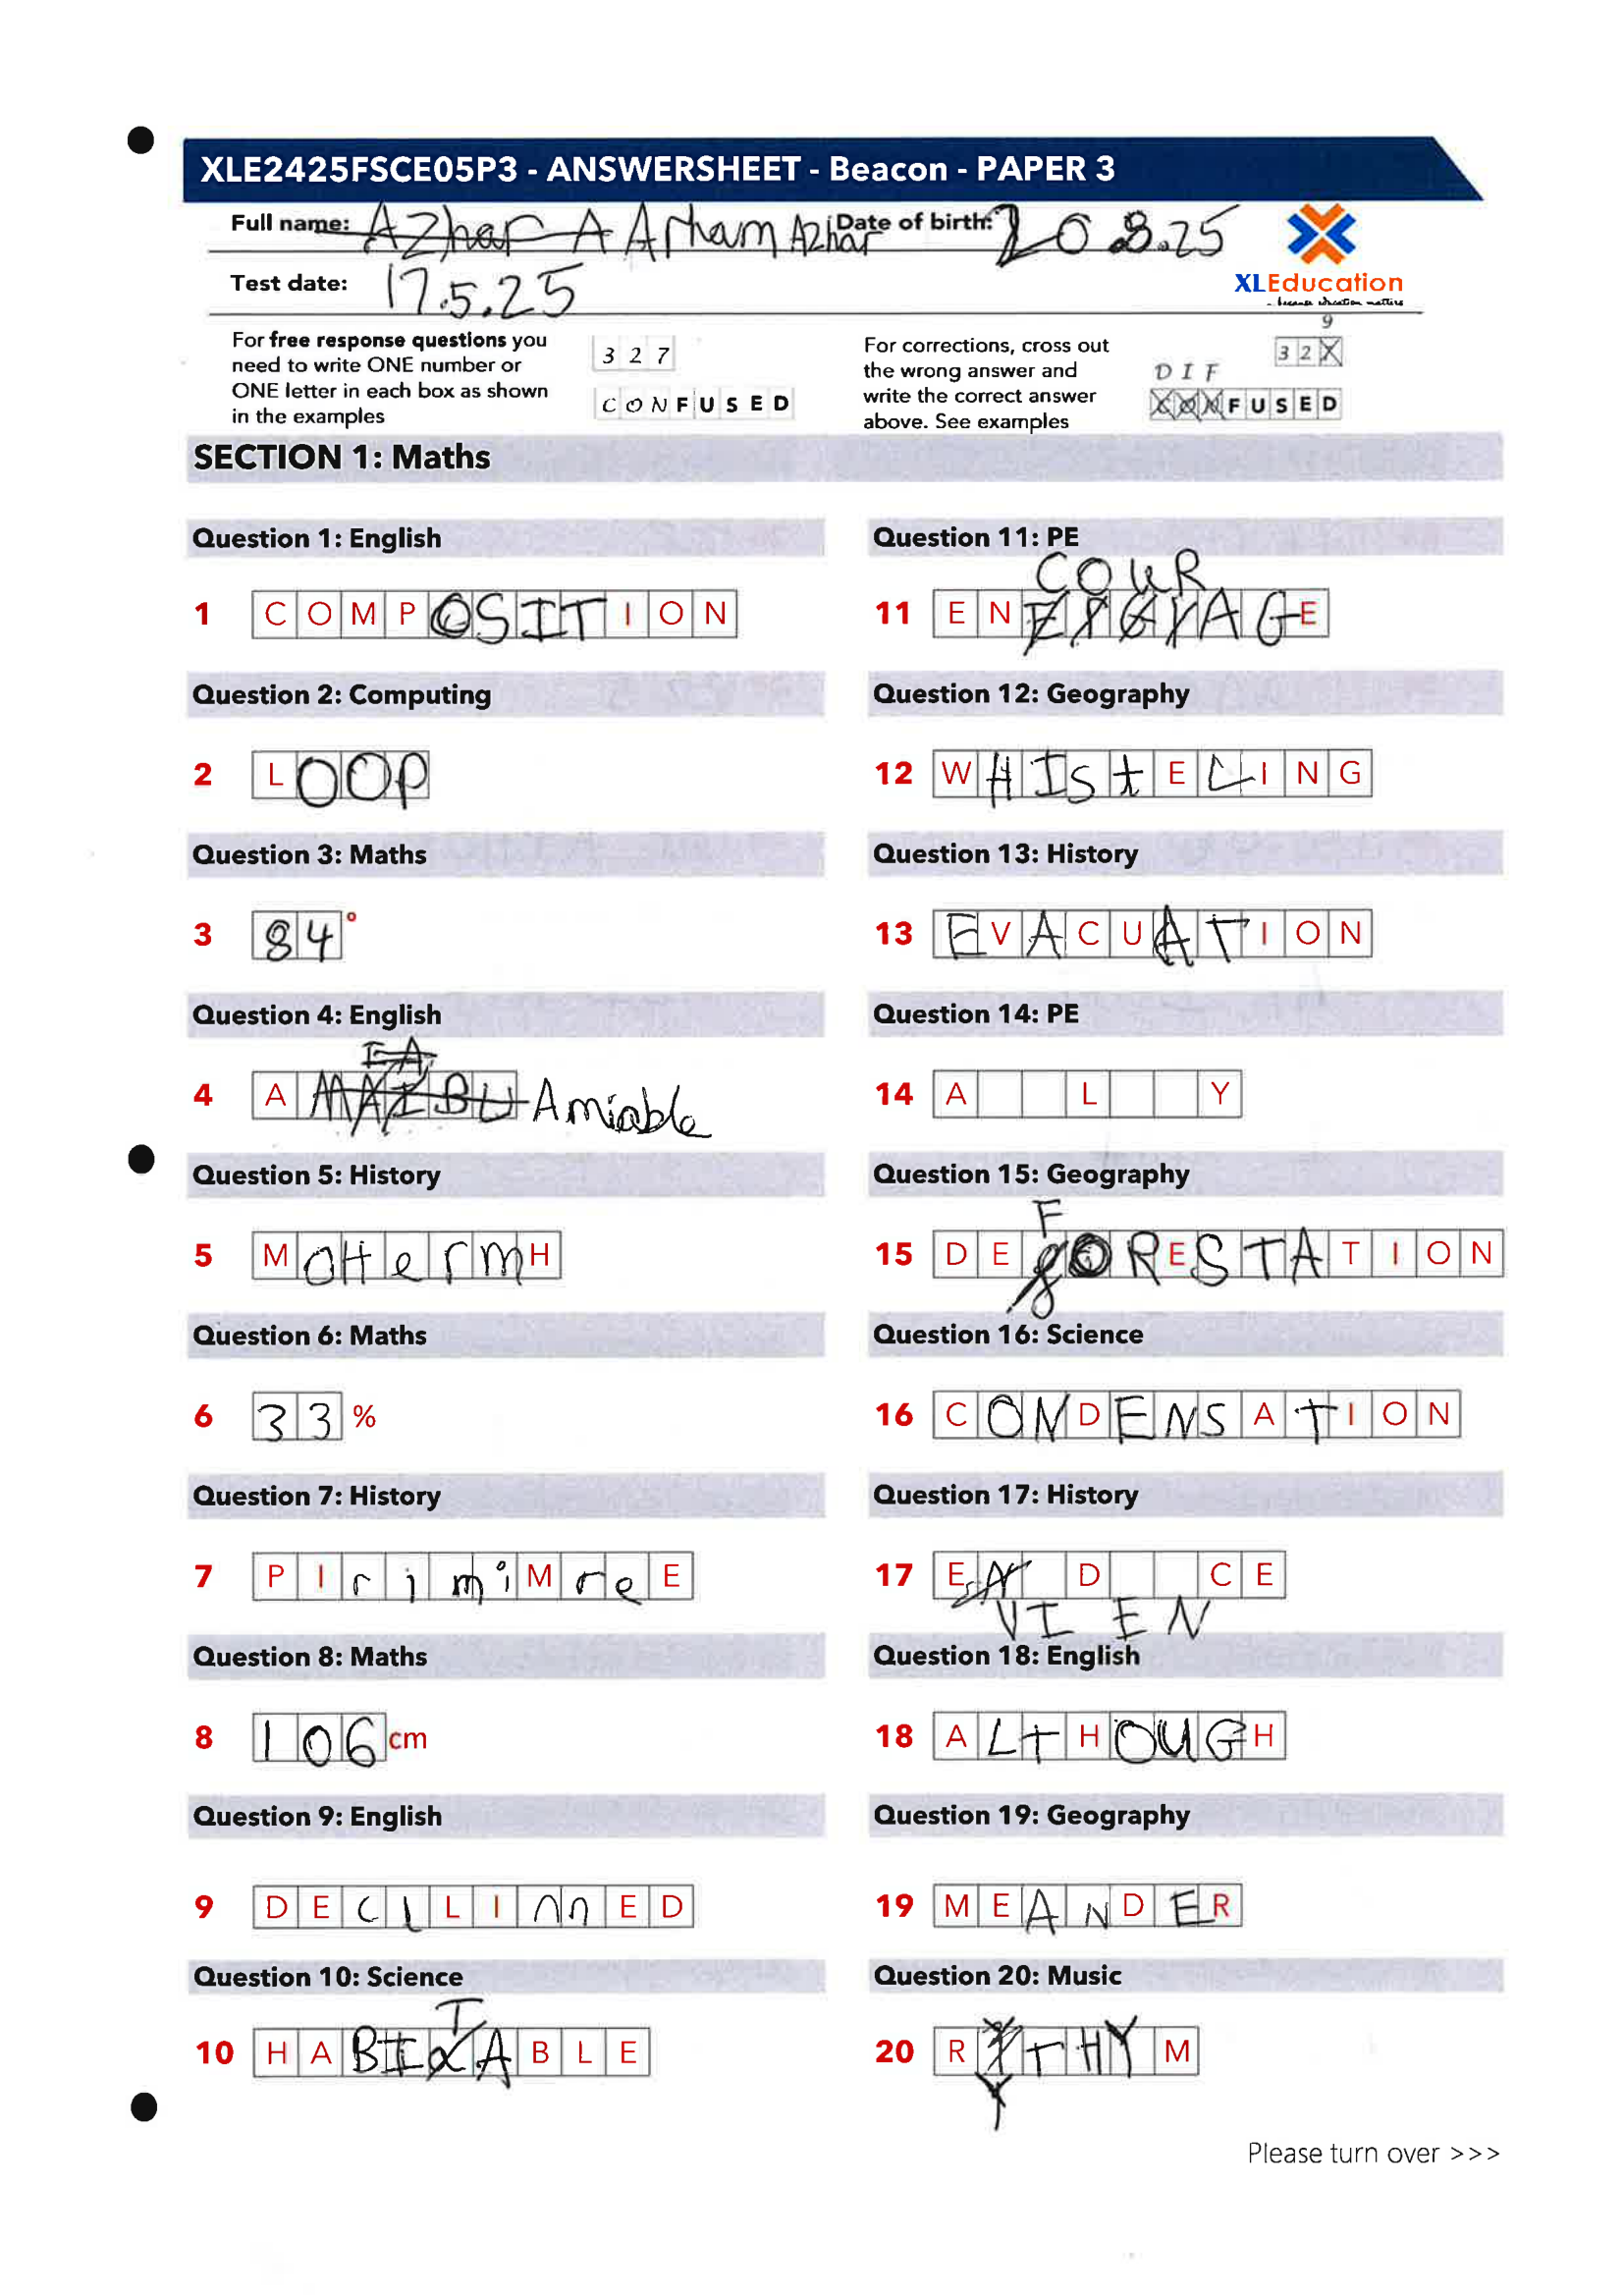 XLE2425FSCE05P3 - ANSWERSHEET - Beacon - PAPER 3
Full name: Azhar A Arham Azhar Date of birth: 20.8.25
Test date: 17.5.25
XLEducation
- because education matters
For free response questions you
need to write ONE number or
ONE letter in each box as shown
in the examples
327
CONFUSED
For corrections, cross out
the wrong answer and
write the correct answer
above. See examples
9
32X
DIF
CONFUSED
SECTION 1: Maths
Question 1: English
1 COMPOSITION
Question 2: Computing
2 LOOP
Question 3: Maths
3 84°
Question 4: English
IA
4 AMAIBU Amiable
Question 5: History
5 MottermH
Question 6: Maths
6 33%
Question 7: History
7 PIrimiMreE
Question 8: Maths
8 106cm
Question 9: English
9 DECLLInnED
Question 10: Science
T
10 HABI ABLE
Question 11: PE
COUR
11 EN AGE
Question 12: Geography
12 WHIStELING
Question 13: History
13 EVACUATION
Question 14: PE
14 A L Y
Question 15: Geography
F
15 DE ORESTATION
Question 16: Science
16 CONDENSATION
Question 17: History
17 E D CE
VI EN
Question 18: English
18 ALTHOUGH
Question 19: Geography
19 MEANDER
Question 20: Music
20 RYTHYM
Y
Please turn over >>>